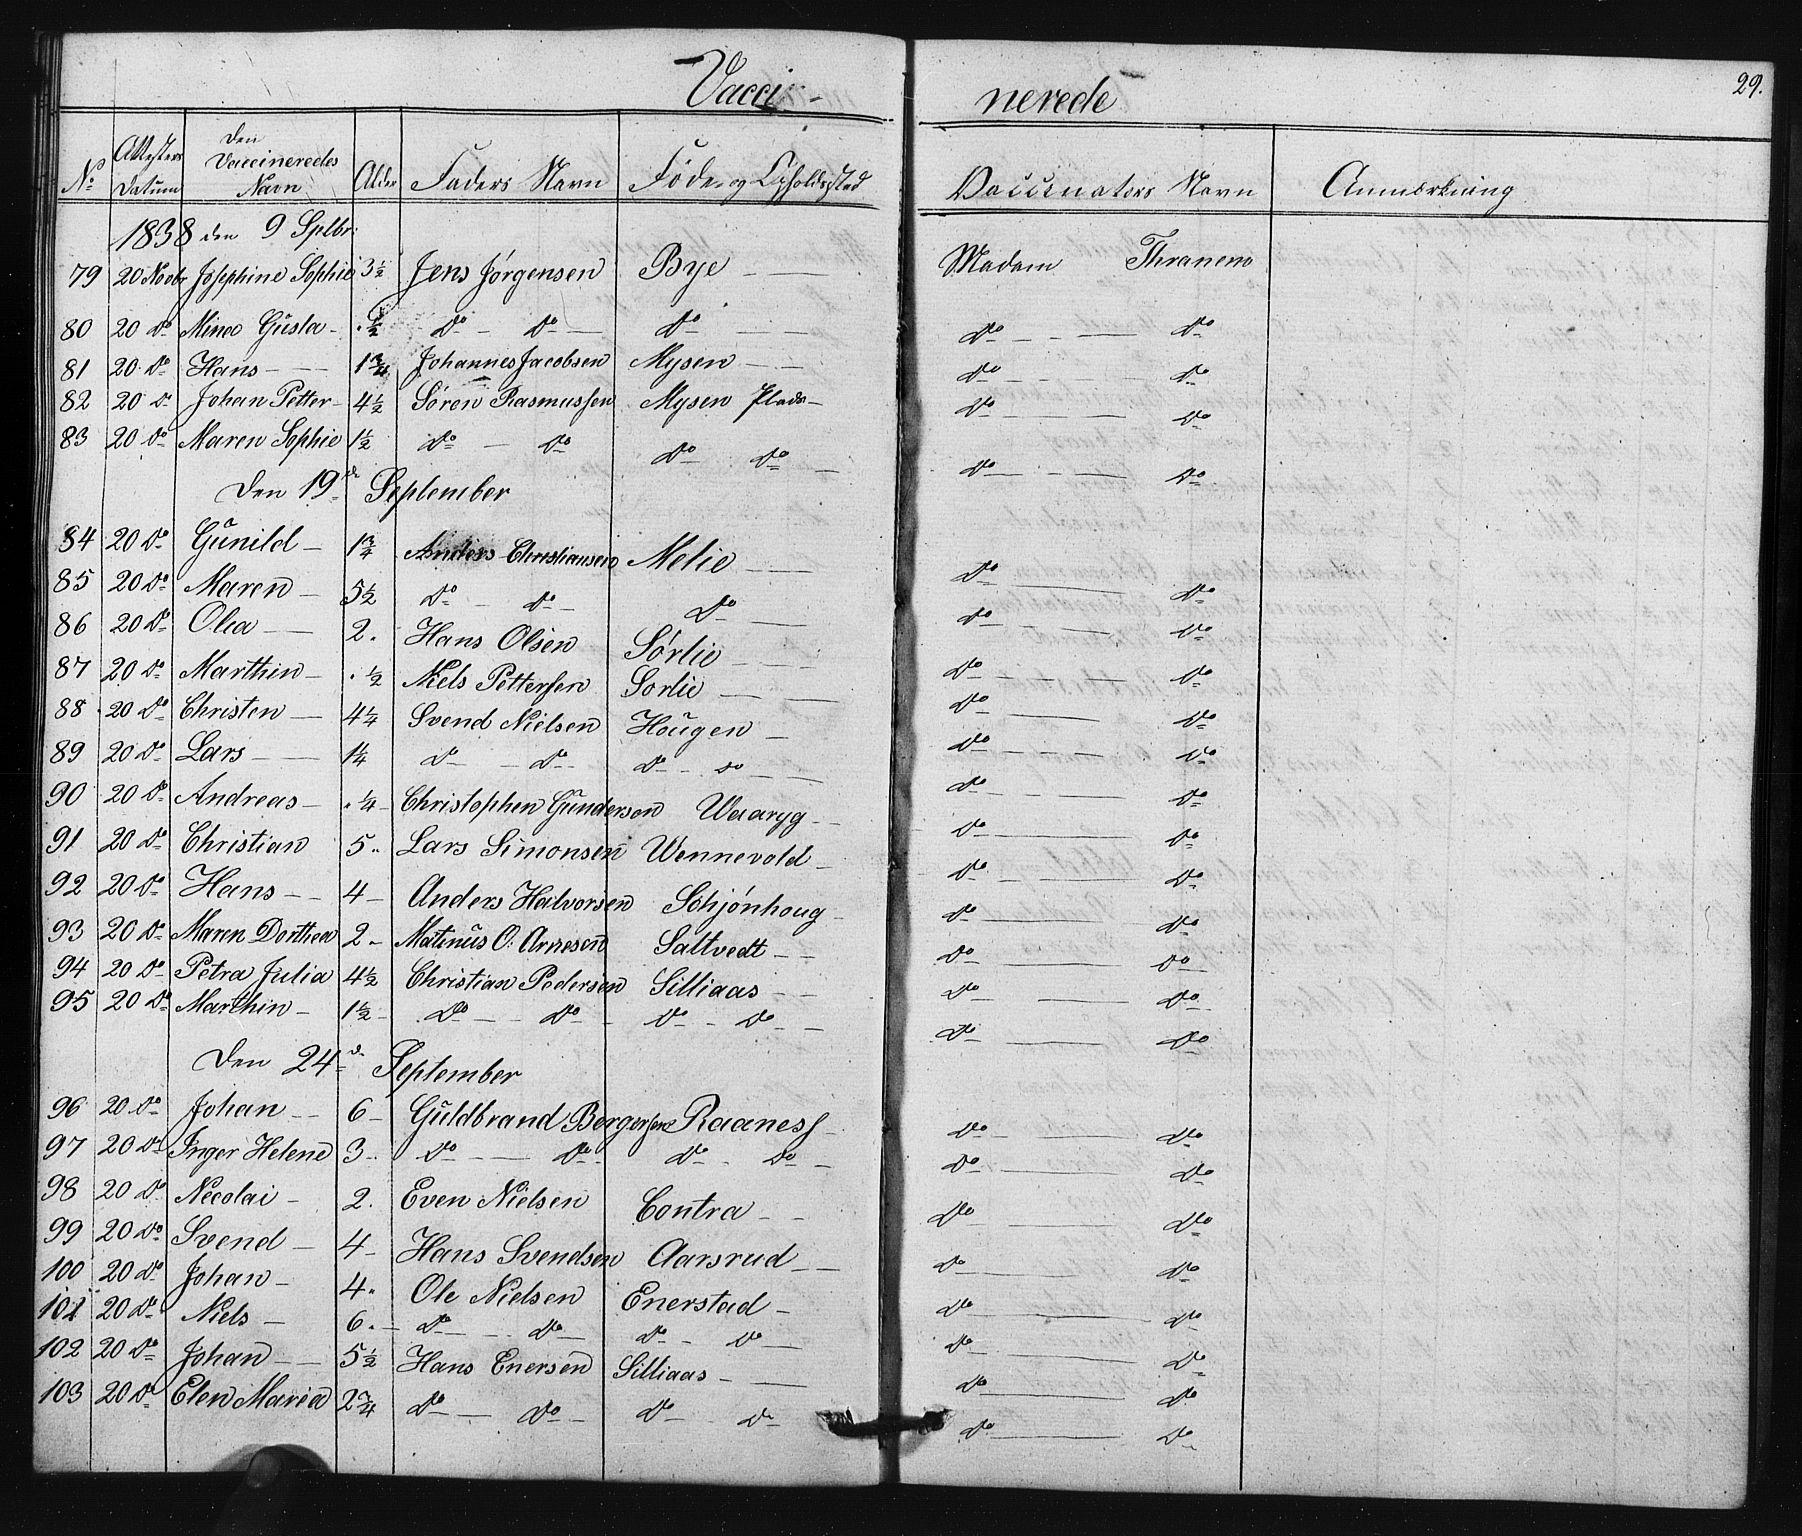 Vacci- nerede 29.
No Attestens Datum Den Vaccineredes Navn Alder Faders Navn Føde- og Opholdssted Vaccinators Navn Anmærkning
1838 den 9 Sptbr:
79 20 Novbr Josephine Sophie 3½ Jens Jørgensen Bye — Madam Thranem
80 20 Do Mina Gusta - ½ Do - Do — Do — Do — Do
81 20 Do Hans — 1¾ Johannes Jacobsen Mysen — Do — Do
82 20 Do Johan Petter - 4½ Søren Rasmussen Mysen Plads - Do — Do
83 20 Do Maren Sophie 1½ Do — Do Do Do — Do — Do
Den 19de September
84 20 Do Gunild — 1¾ Anders Christiansen Melie — Do — Do
85 20 Do Maren — 5½ Do - Do - Do — Do — Do
86 20 Do Olea — 2. Hans Olsen Sørlie — Do — Do
87 20 Do Marthin — ½ Niels Pettersen Sorlie — Do — Do
88 20 Do Christen — 4¼ Svend Nielsen Hougen — Do — Do
89 20 Do Lars — 1¼ Do - Do - Do - Do — Do — Do
90 20 Do Andreas — ¼ - Christophen Gundersen Waaryg - Do — Do
91 20 Do Christian 5 - Lars Simonsen Wennevold - Do — Do
92 20 Do Hans — 4 - Anders Halvorsen Schjønhoug - Do — Do
93 20 Do Maren Dorthea 2 - Matinus O. Arnesen Saltvedt — Do — Do
94 20 Do Petra Julia 4½ Christian Pedersen Silliaas — Do — Do
95 20 Do Marthin — 1½ - Do — Do - Do - Do — Do — Do
Den 24de September
96 20 Do Johan — 6 - Guldbrand Bergersen Raaness - Do — Do
97 20 Do Inger Helene 3 - Do — Do - Do - Do — Do — Do
98 20 Do Necolai — 2. Even Nielsen Contra — Do — Do
99 20 Do Svend — 4 - Hans Svendsen Aarsrud — Do — Do
100 20 Do Johan — 4 - Ole Nielsen Enerstad — Do — Do
101 20 Do Niels — 6 - Do — Do — Do - Do — Do — Do
102 20 Do Johan — 5½ Hans Enersen Silliaas — Do — Do
103 20 Do Elen Maria 2¾ Do — Do - Do - Do Do — Do